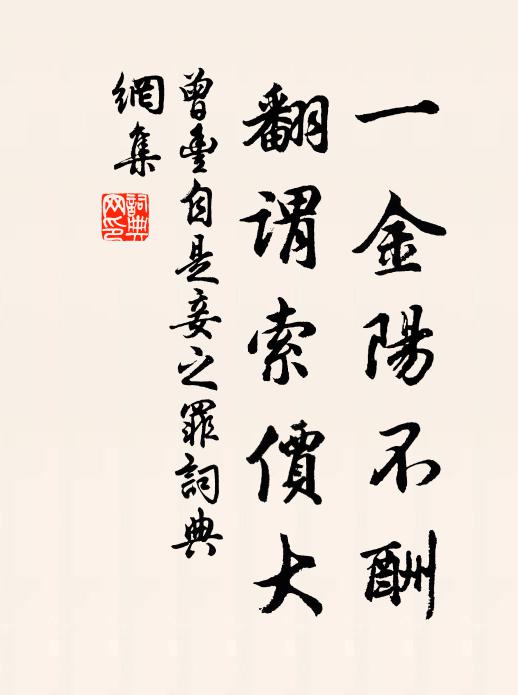 一金陽不酬
翻謂索價大
曾豐自是妾之罪詞典
網集
詞典
网印